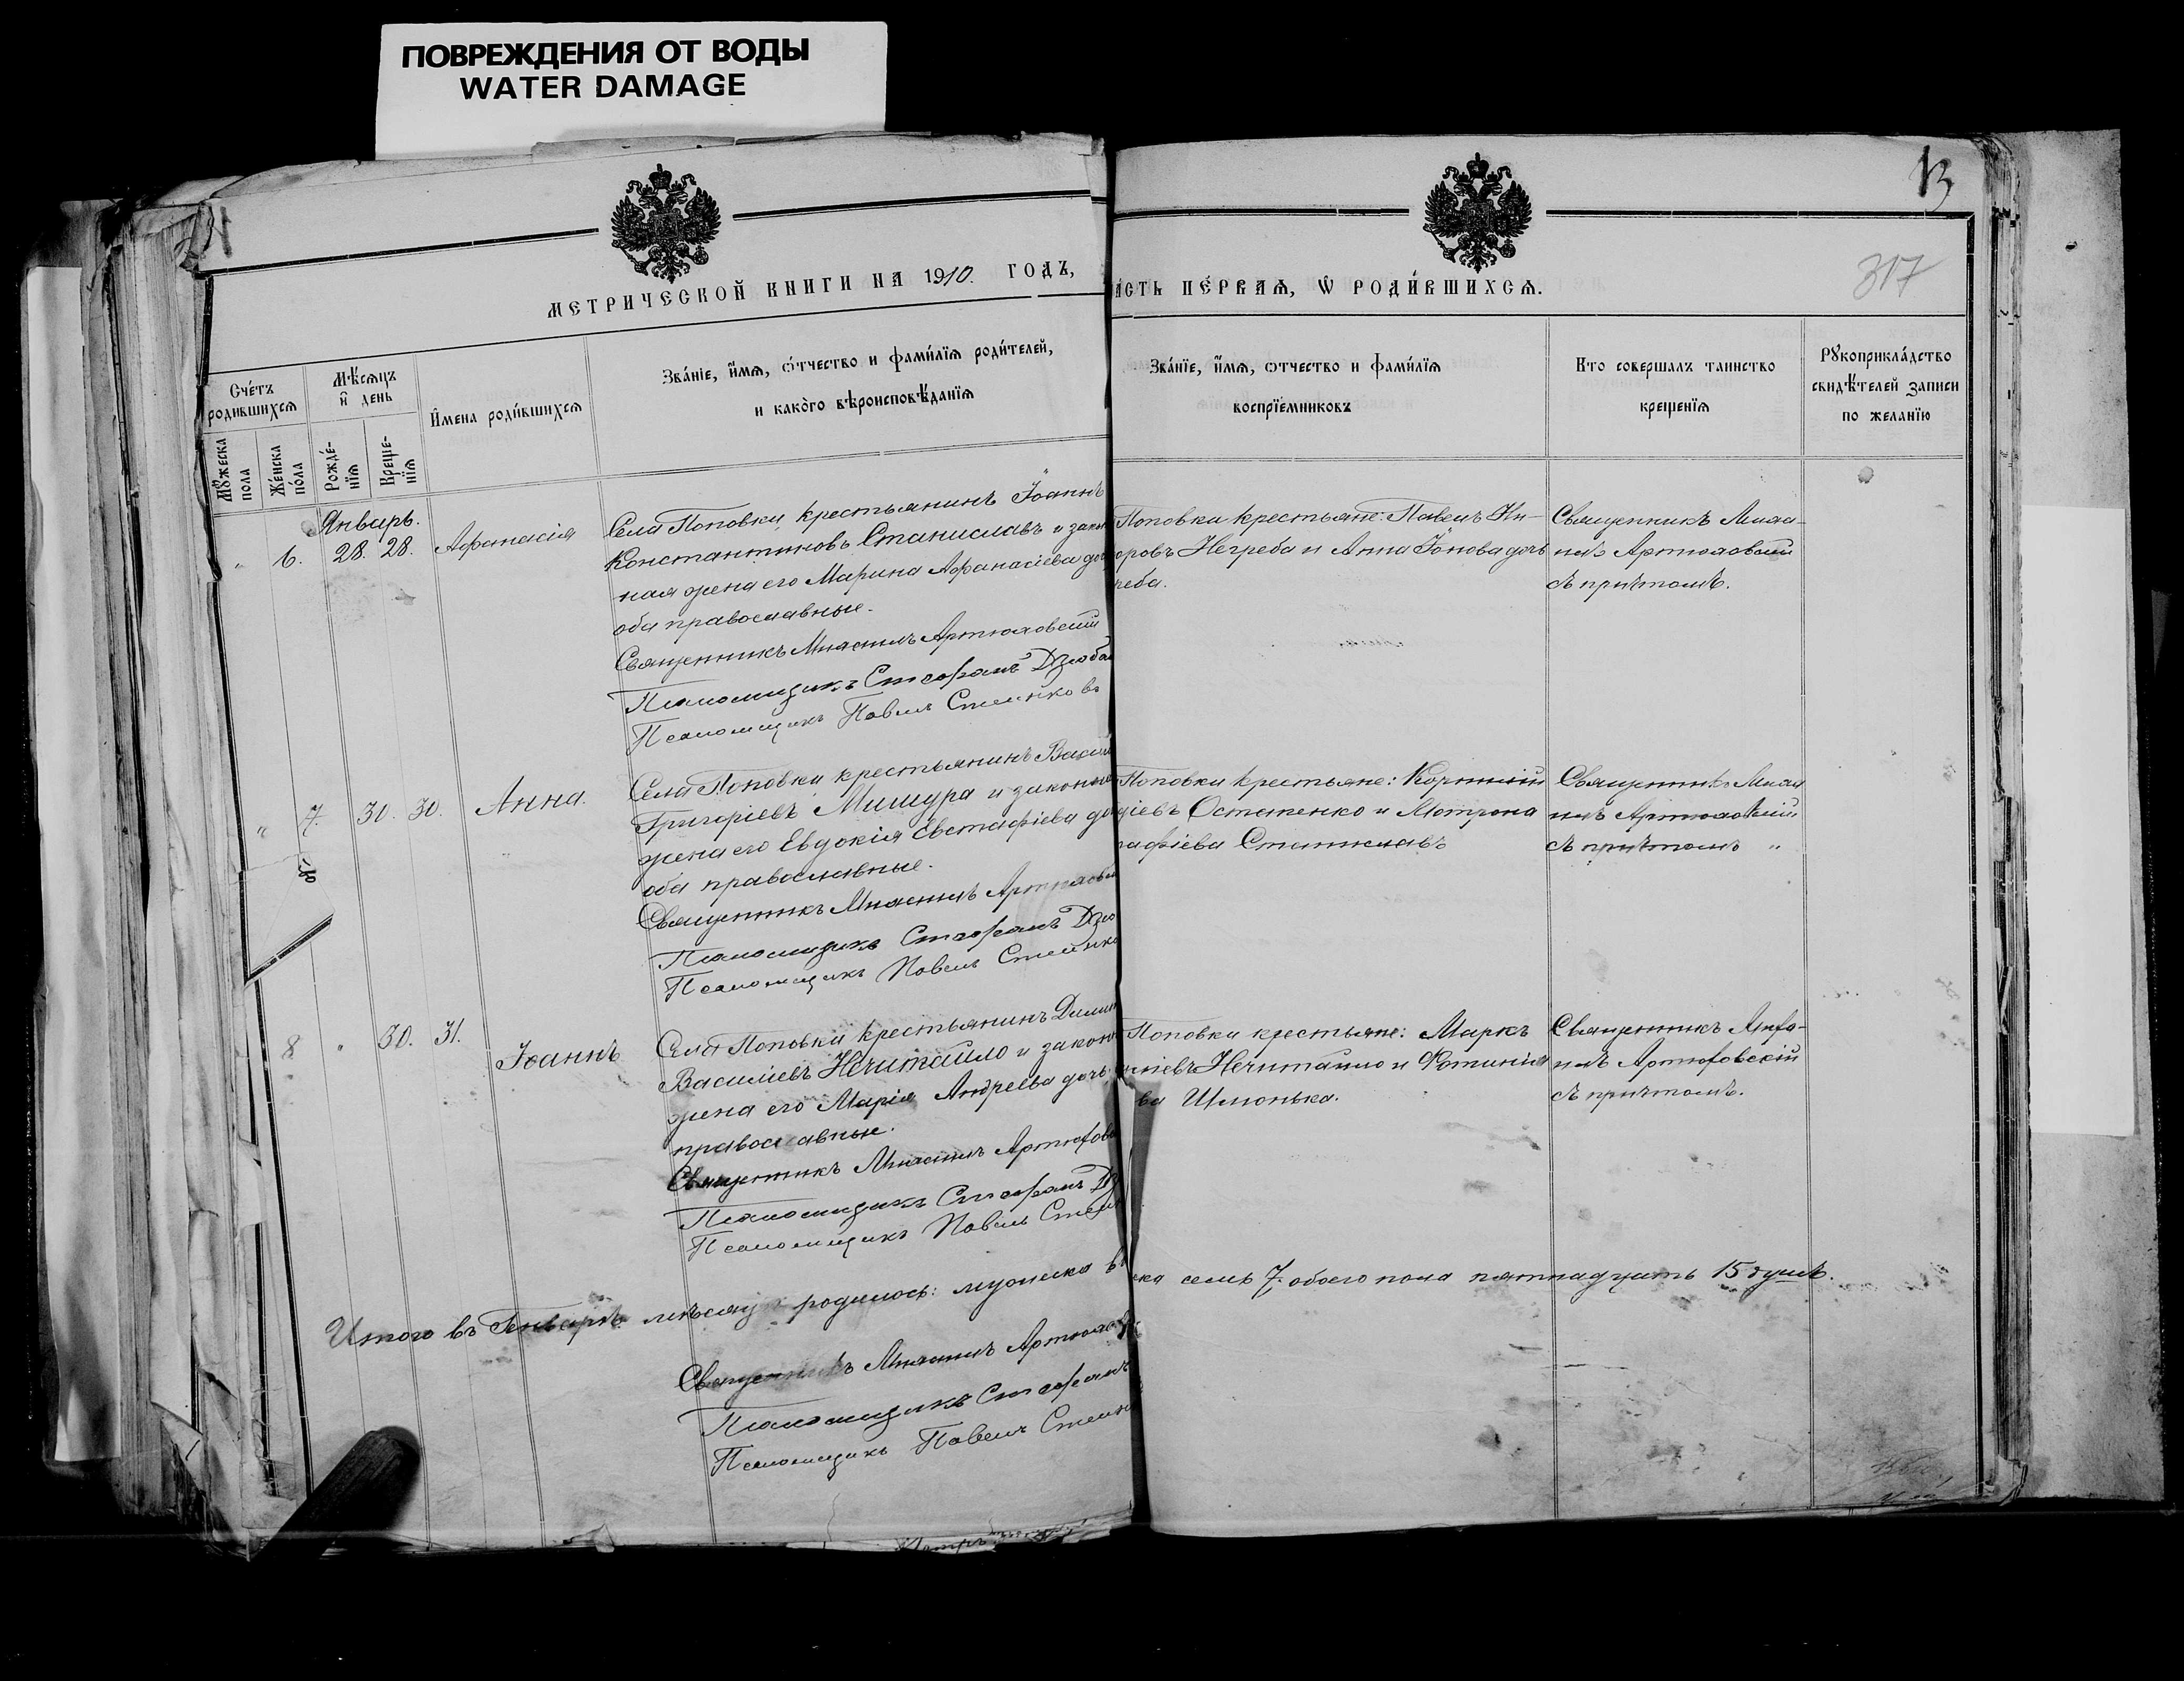 ПОВРЕЖДЕНИЯ ОТ ВОДЫ
WATER DAMAGE
13
317
МЕТРИЧЕСКОЙ КНИГИ НА 1910. ГОДЪ,
АСТЬ ПЕ́РВАѦ, Ѡ РОДИ́ВШИХСѦ.
Сче́тъ родившихсѧ
Мѣ́сѧцъ и҆ день
И҆мена роди́вшихсѧ
Зва́нїе, и҆́мѧ, ѻ҆́тчество и фами́лїѧ роди́телей,
и како́го вѣроисповѣ́данїѧ
Зва́нїе, и҆́мѧ, ѻтчество и фами́лїѧ
воспрїе́мниковъ
Кто совершалъ таинство
крещенїѧ
Рꙋкоприкла́дство
свидѣ́телей записи
по желанїю
Мꙋжеска пола
Же́нска по́ла
Рожде́нїѧ
Креще́нїѧ
Январь.
" 6. 28. 28. Афанасія
Села Поповки крестьянинъ Іоаннъ
Константиновъ Станиславъ и закон
ная жена его Марина Афанасіева доч
оба православные.
Священникъ Мнасинъ Артюховскій
Псаломщикъ Стефанъ Дзюба
Псаломщикъ Павелъ Стеенковъ
Поповки крестьяне: Павелъ Ни-
оровъ Негреба и Анна Іонова дочь
реба.
Священникъ Мнаа-
инъ Артюховскій
съ причтомъ.
" 7. 30. 30. Анна.
Села Поповки крестьянинъ Васил
Григоріевъ Мишура и законная
жена его Евдокія Евстафіева до
оба православные.
Священникъ Мнасинъ Артюховс
Псаломщикъ Стефанъ Дзю
Псаломщикъ Павелъ Стеенко
Поповки крестьяне: Корнилій
ріевъ Остапенко и Мотрона
тафіева Станиславъ
Священникъ Мнаа
инъ Артюховскій
съ причтомъ "
8 " 30. 31. Іоаннъ
Села Поповки крестьянинъ Димит
Василіевъ Нечитайло и закон
жена его Марія Андреева дочь
православные.
Священникъ Мнасинъ Артюхов
Псаломщикъ Стефанъ Дз
Псаломщикъ Павелъ Стеен
Поповки крестьяне: Маркъ
Нечитайло и Фотинія
ва Шмонька.
Священникъ
инъ Артюховскій
съ причтомъ.
Итого въ Генварѣ мѣсяцѣ родилось: мужеска в
ска семь 7. обоего пола пятнадцать 15 душъ.
Священникъ Мнасинъ Артюхов
Псаломщикъ Стефанъ
Псаломщикъ Павелъ Стеен